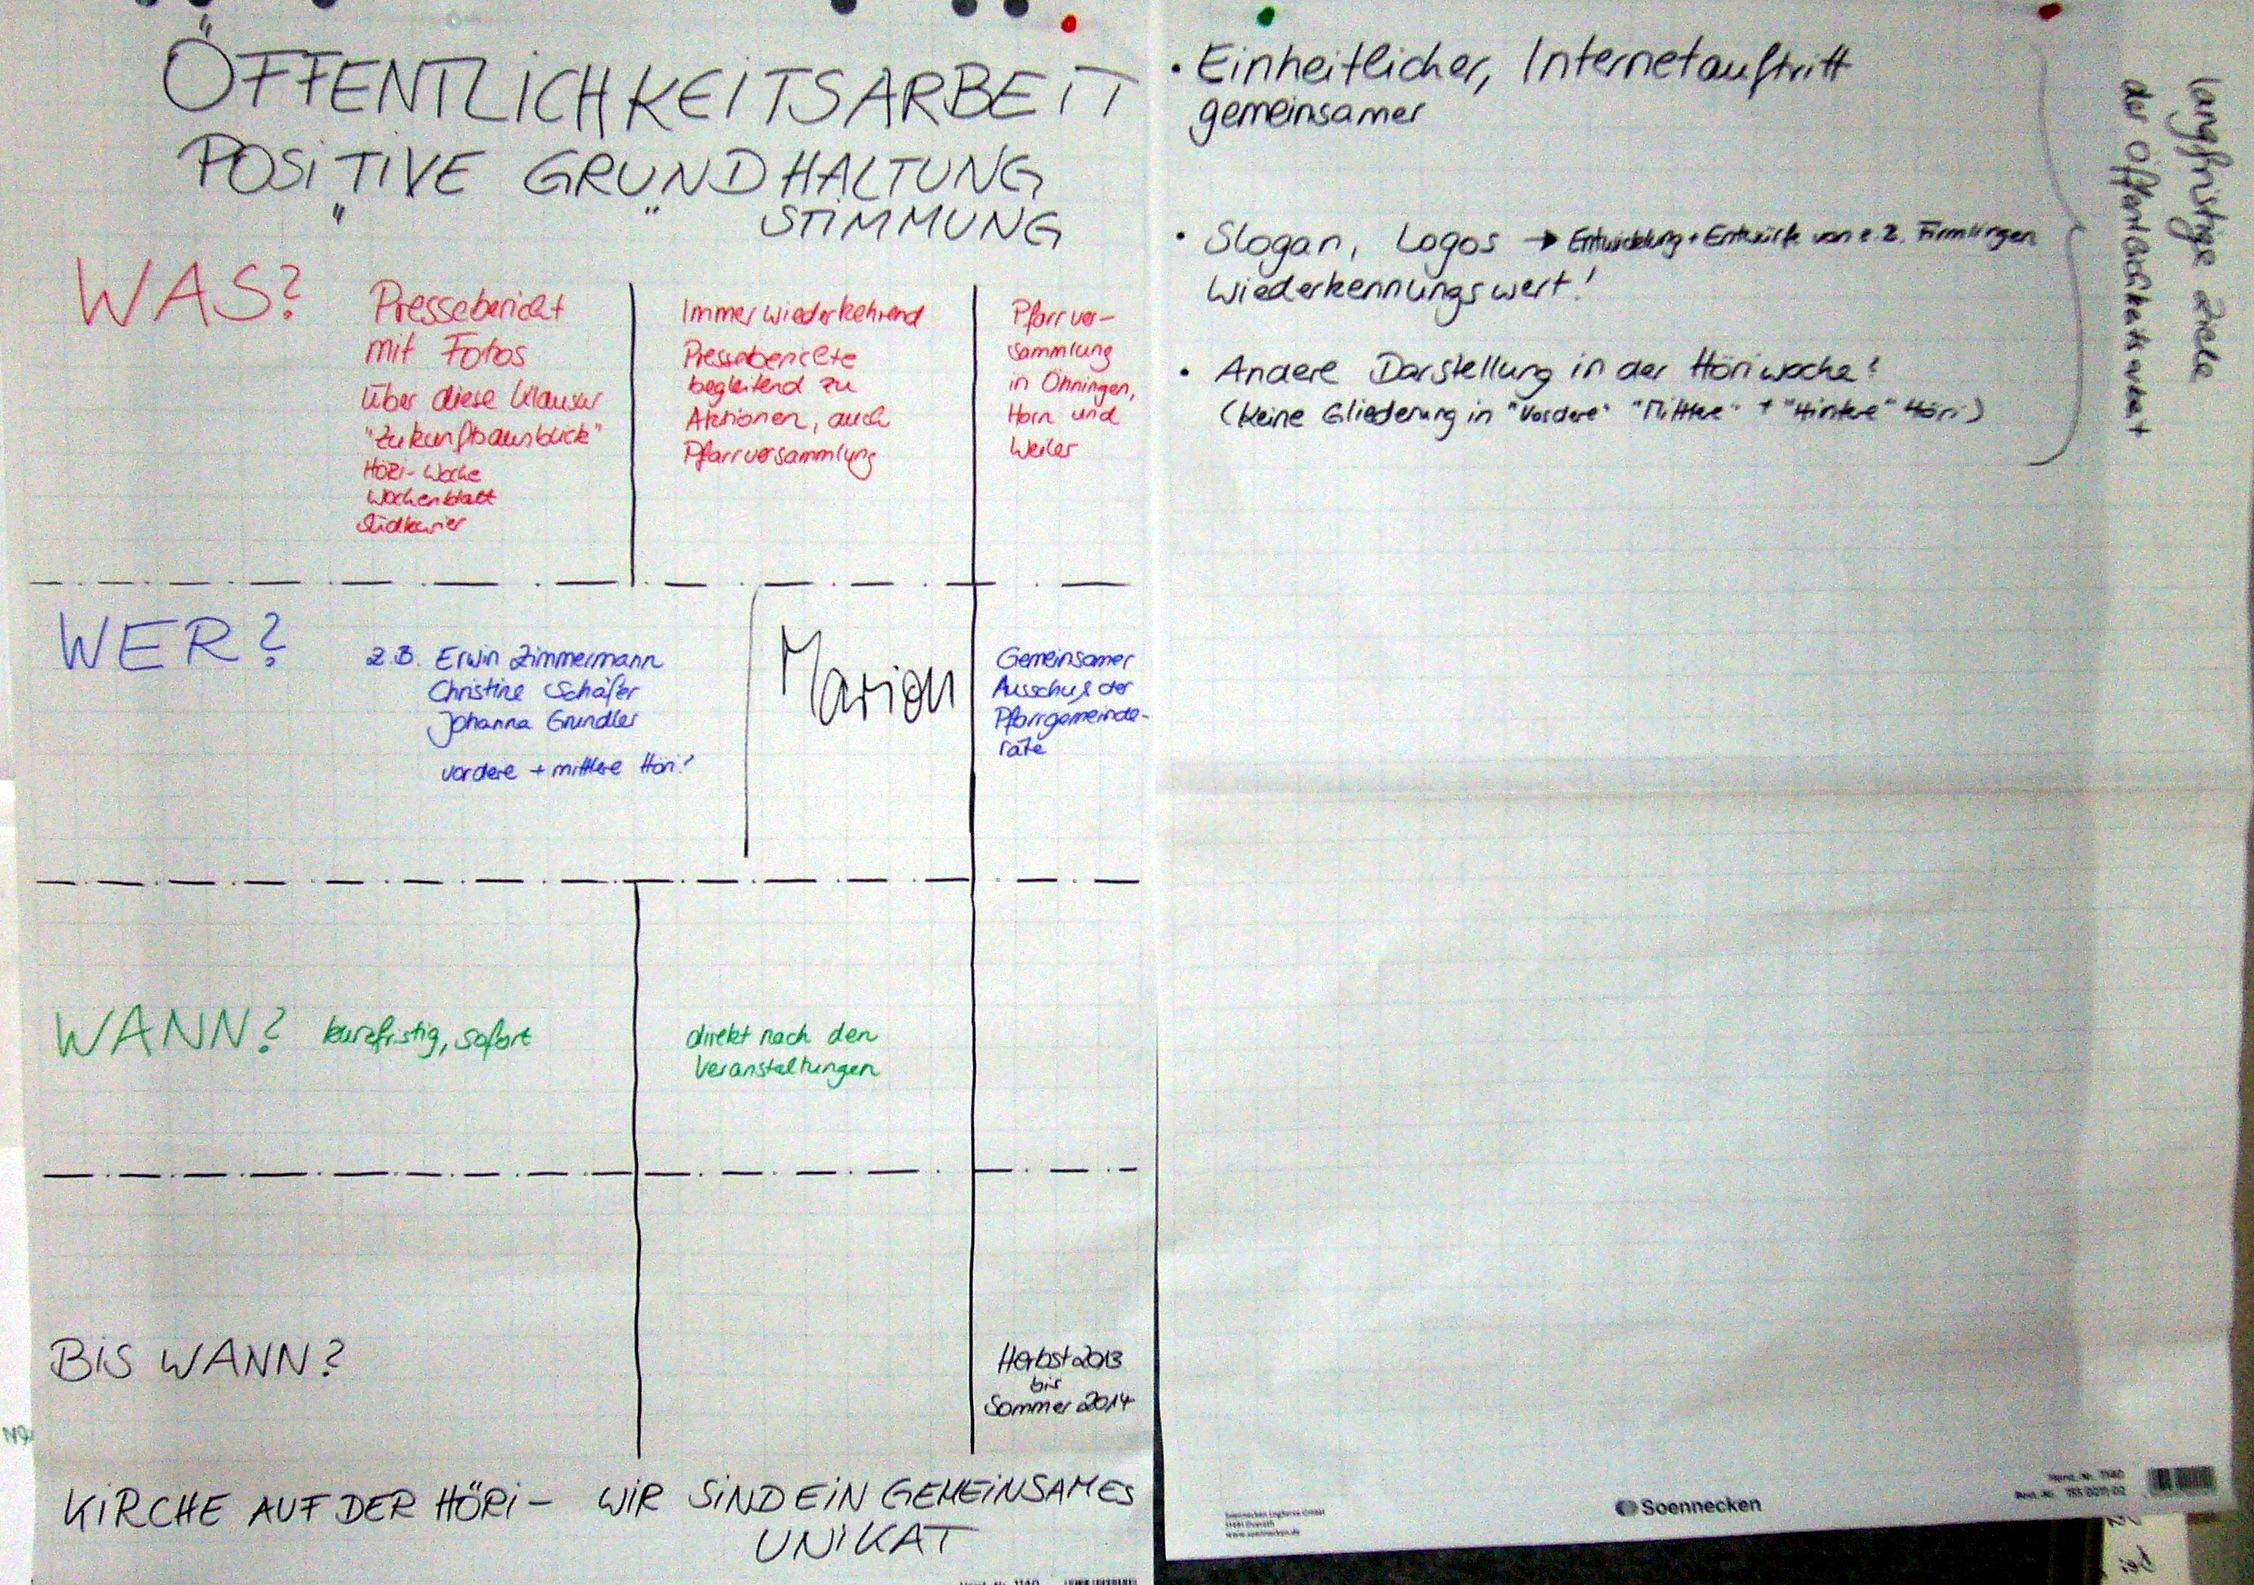 ÖFFENTLICHKEITSARBEIT
POSITIVE GRUNDHALTUNG
" " STIMMUNG
WAS?
Pressebericht
mit Fotos
über diese Klausur
"Zukunftsausblick"
Höri-Woche
Wochenblatt
Südkurier
Immer wiederkehrend
Presseberichte
begleitend zu
Aktionen, auch
Pfarrversammlung
Pfarrver-
sammlung
in Öhningen,
Horn und
Weiler
WER?
z.B. Erwin Zimmermann
Christine Schäfer
Johanna Grundler
vordere + mittlere Höri?
Marion
Gemeinsamer
Ausschuß der
Pfarrgemeinde-
räte
WANN?
kurzfristig, sofort
direkt nach den
Veranstaltungen
BIS WANN?
Herbst 2013
bis
Sommer 2014
KIRCHE AUF DER HÖRI - WIR SIND EIN GEMEINSAMES
UNIKAT
• Einheitlicher, Internetauftritt
gemeinsamer
• Slogan, Logos → Entwicklung + Entwürfe von z. Firmlingen
Wiederkennungswert!
• Andere Darstellung in der Höriwoche!
(keine Gliederung in "Vordere" "Mittlere" + "Hintere" Höri)
langfristige Ziele
der Öffentlichkeitsarbeit
Soennecken
www.soennecken.de